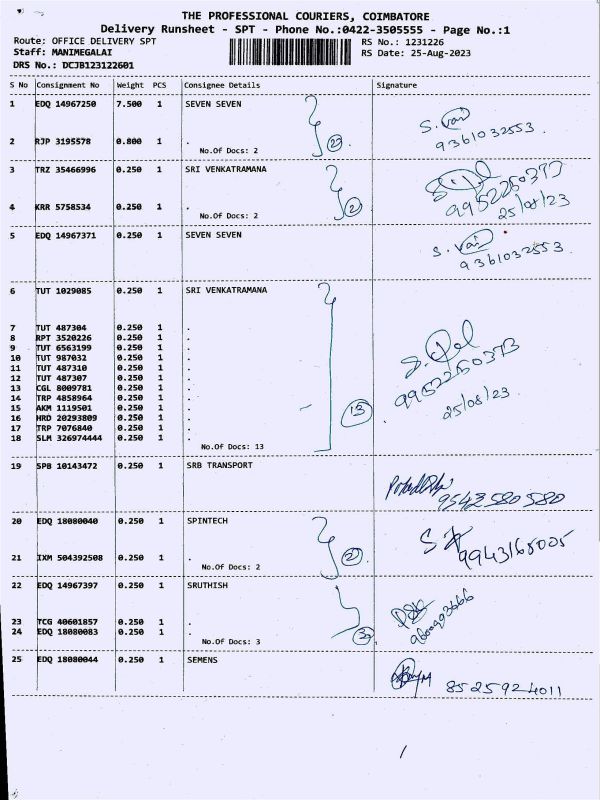 THE PROFESSIONAL COURIERS, COIMBATORE
Delivery Runsheet - SPT - Phone No.:0422-3505555 - Page No.:1
Route: OFFICE DELIVERY SPT RS No.: 1231226
Staff: MANIMEGALAI RS Date: 25-Aug-2023
DRS No.: DCJB123122601
S No Consignment No Weight PCS Consignee Details Signature
1 EDQ 14967250 7.500 1 SEVEN SEVEN
S. Vani
9361032553.
2 RJP 3195578 0.800 1 .
No.Of Docs: 2 2
3 TRZ 35466996 0.250 1 SRI VENKATRAMANA
9952250373
25/08/23
4 KRR 5758534 0.250 1 .
No.Of Docs: 2 2
5 EDQ 14967371 0.250 1 SEVEN SEVEN
S. Vani
9361032553.
6 TUT 1029085 0.250 1 SRI VENKATRAMANA
7 TUT 487304 0.250 1 .
8 RPT 3520226 0.250 1 .
9 TUT 6563199 0.250 1 .
10 TUT 987032 0.250 1 .
11 TUT 487310 0.250 1 .
12 TUT 487307 0.250 1 .
13 CGL 8009781 0.250 1 .
14 TRP 4858964 0.250 1 .
15 AKM 1119501 0.250 1 .
16 HRD 20293809 0.250 1 .
17 TRP 7076840 0.250 1 .
18 SLM 326974444 0.250 1 .
No.Of Docs: 13 13
9952250373
25/08/23
19 SPB 10143472 0.250 1 SRB TRANSPORT
9542580580
20 EDQ 18080040 0.250 1 SPINTECH
9943165005
21 IXM 504392508 0.250 1 .
No.Of Docs: 2 2
22 EDQ 14967397 0.250 1 SRUTHISH
23 TCG 40601857 0.250 1 .
24 EDQ 18080083 0.250 1 .
No.Of Docs: 3 3
25 EDQ 18080044 0.250 1 SEMENS
8525924011